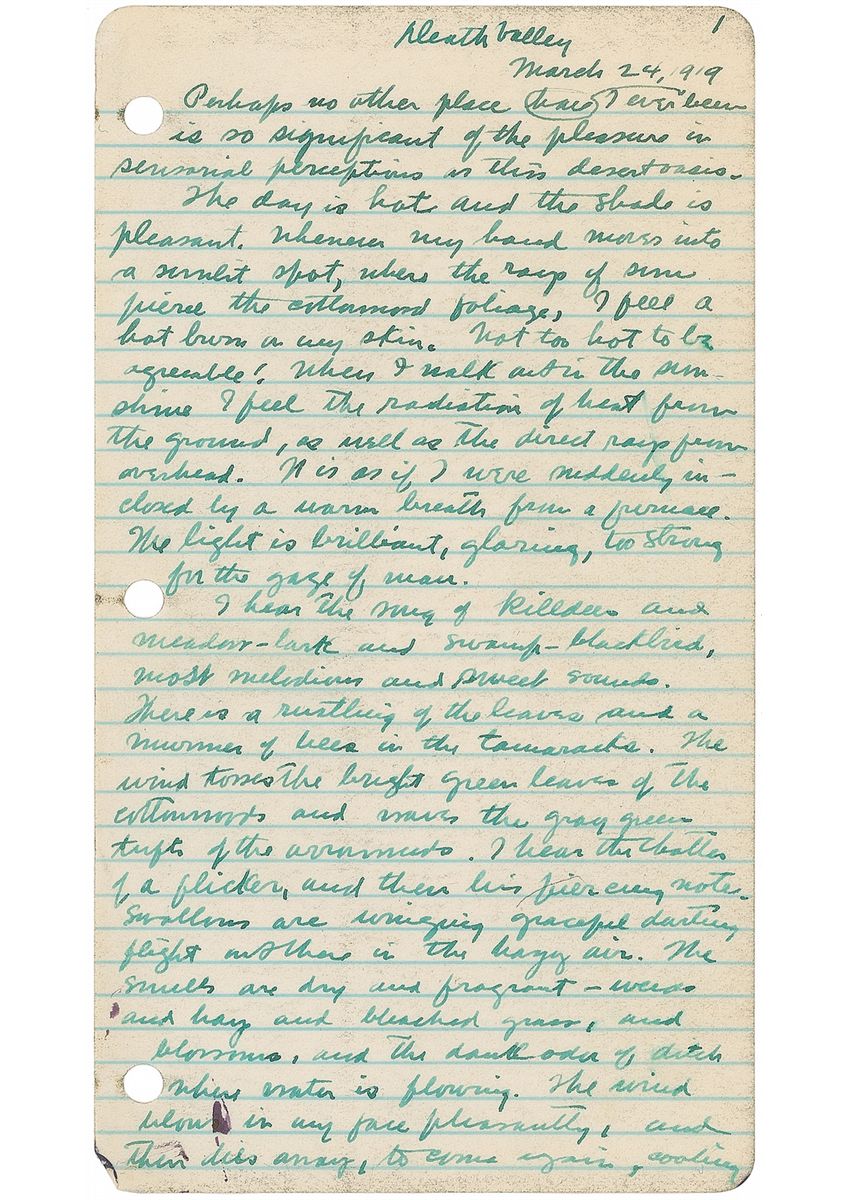 1
Death Valley
March 24, 1919
Perhaps no other place have I ever been
is so significant of the pleasure in
sensorial perceptions as this desert oasis.
The day is hot and the shade is
pleasant. Whenever my hand moves into
a sunlit spot, where the rays of sun
pierce the cottonwood foliage, I feel a
hot burn on my skin. Not too hot to be
agreeable! When I walk out in the sun-
shine I feel the radiation of heat from
the ground, as well as the direct rays from
overhead. It is as if I were suddenly in-
closed by a warm breath from a furnace.
The light is brilliant, glaring, too strong
for the gaze of man.
I hear the song of killdeer and
meadow-lark and swamp-blackbird,
most melodious and sweet sounds.
There is a rustling of the leaves and a
murmer of bees in the tamaracks. The
wind tosses the bright green leaves of the
cottonwoods and waves the gray green
tufts of the arrowweeds. I hear the chatter
of a flicker, and then his piercing note.
Swallows are winging graceful darting
flight out there in the hazy air. The
smells are dry and fragrant - weeds
and hay and bleached grass, and
blossoms, and the dank odor of ditch
where water is flowing. The wind
blows in my face pleasantly, and
then dies away, to come again, cooling